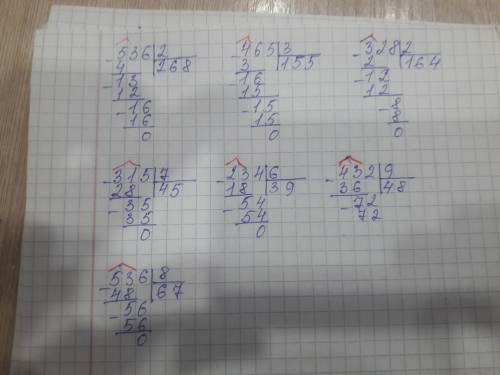 - 536 | 2
4 | 268
- 13
12
- 16
16
0
- 465 | 3
3 | 155
- 16
15
- 15
15
0
- 328 | 2
2 | 164
- 12
12
- 8
8
0
- 315 | 7
28 | 45
- 35
35
0
- 234 | 6
18 | 39
- 54
54
0
- 432 | 9
36 | 48
- 72
72
- 536 | 8
48 | 67
- 56
56
0